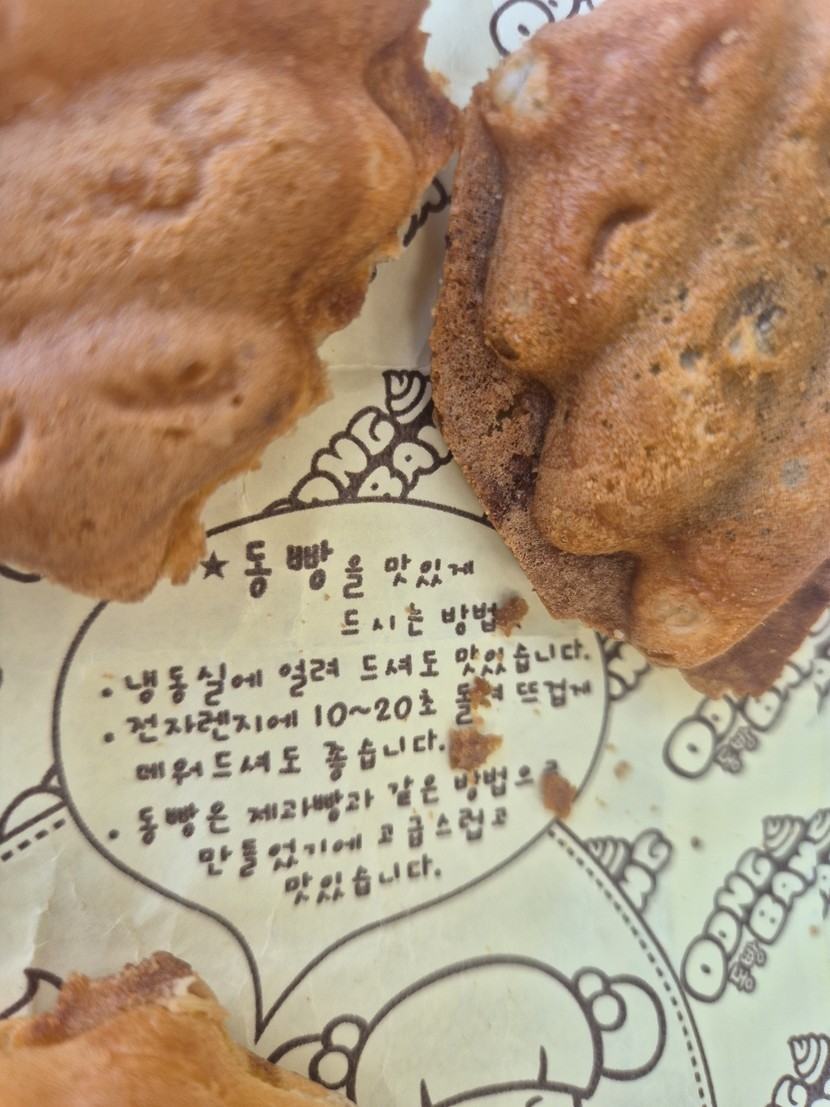 ★ 똥빵을 맛있게
드시는 방법
• 냉동실에 얼려 드셔도 맛있습니다.
• 전자렌지에 10~20초 돌려 뜨겁게
데워드셔도 좋습니다.
• 똥빵은 제과빵과 같은 방법으로
만들었기에 고급스럽고
맛있습니다.
ODNG
BANG
똥빵